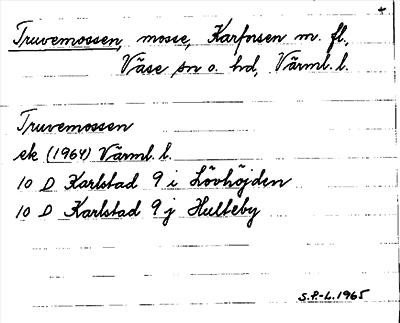 Truvemossen, mosse, Karforsen m. fl.,
Väse sn o. hd, Värml. l.
Truvemossen
ek (1964) Värml. l.
10 D Karlstad 9 i Lövhöjden
10 D Karlstad 9 j Hulteby
S.P.-L. 1965